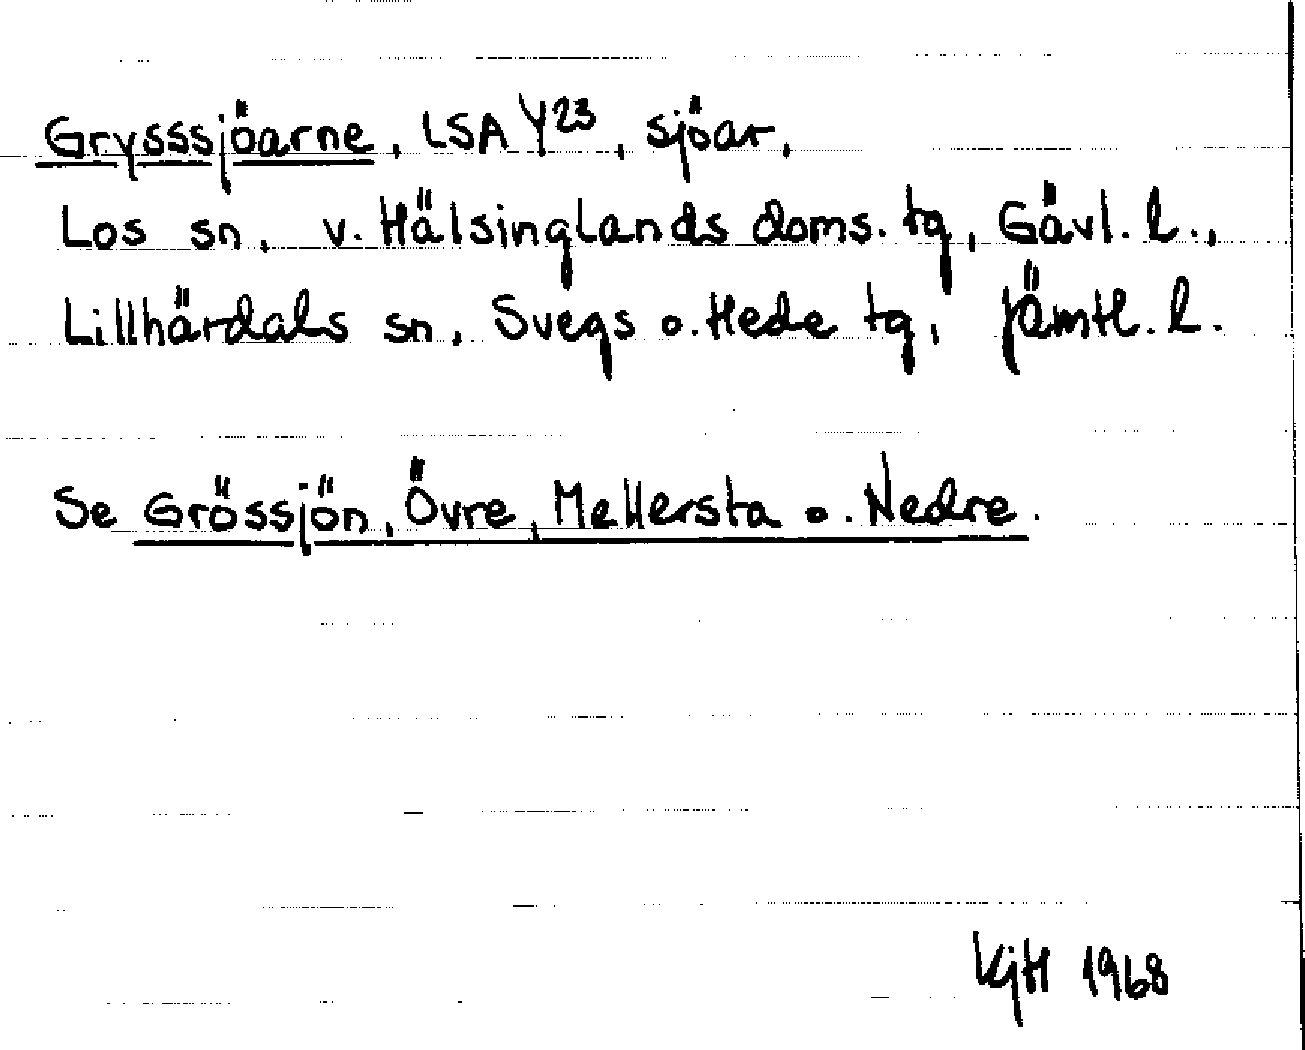 Grysssjöarne, LSA Y23, sjöar,
Los sn, v. Hälsinglands doms. tg, Gävl. l.,
Lillhärdals sn, Svegs o. Hede tg, Jämtl. l.
Se Grössjön, Övre, Mellersta o. Nedre.
KjH 1968